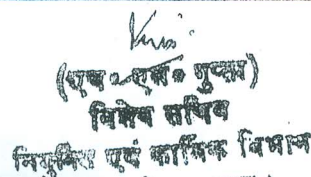 (एच॰ एल॰ गुप्ता)
विशेष सचिव
नियुक्ति एवं कार्मिक विभाग